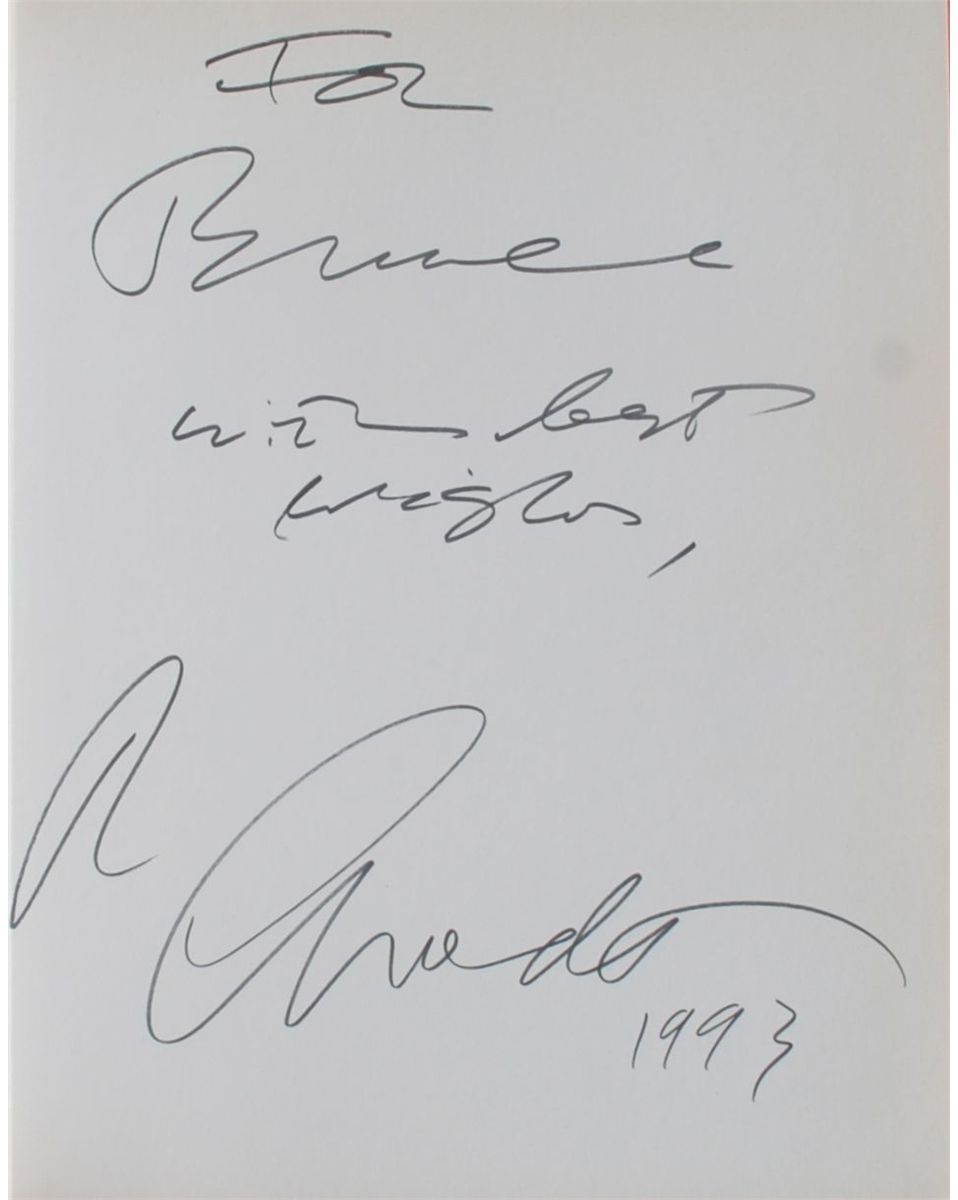 For
Bruce
with best
wishes,
1993